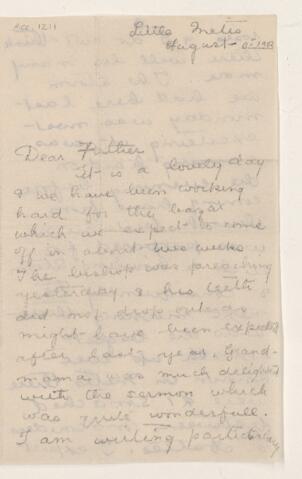 Acc. 1211
Little Metis
August - 1913
Dear Father
It is a lovely day
& we have been working
hard for the bazar
which we expect to come
off in about two weeks
The bishop was preaching
yesterday & his teeth
did not drop out as
might have been expected
after last year. Grand-
mama was much delighted
with the sermon which
was quite wonderfull.
I am writing particulary